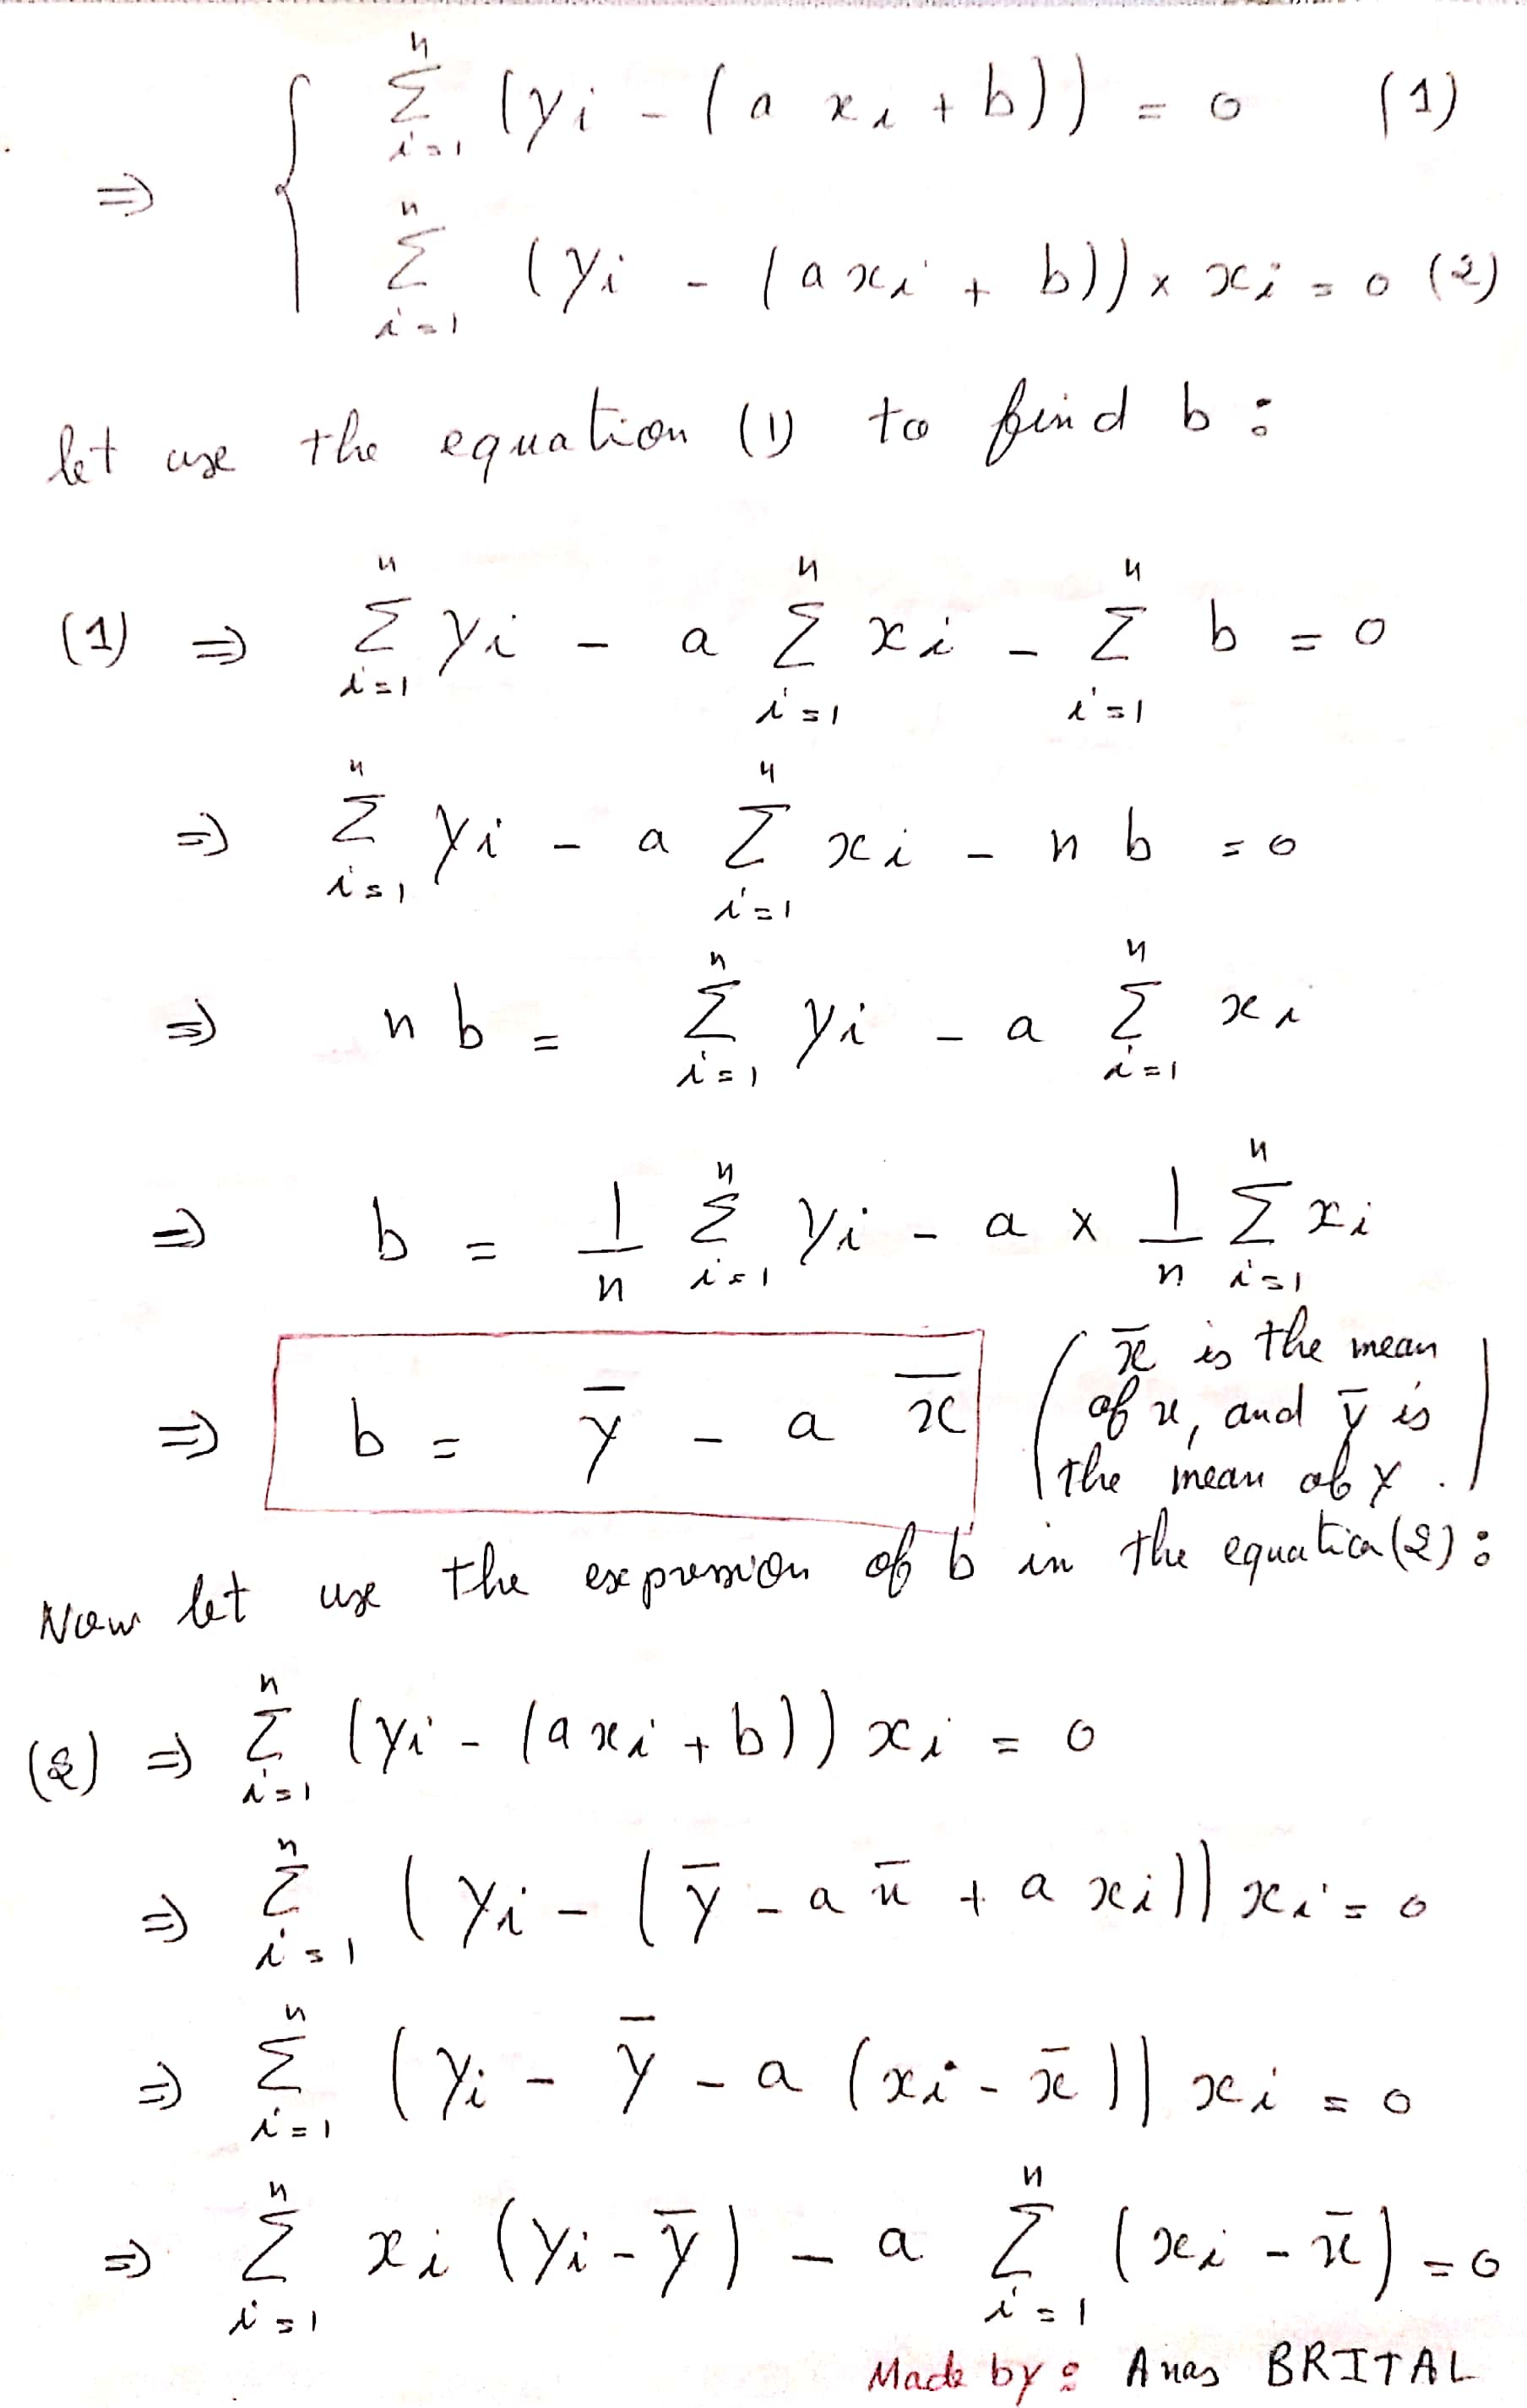 ⇒ { Σ_{i=1}^{n} (yi - (a xi + b)) = 0 (1)
Σ_{i=1}^{n} (yi - (a xi + b)) × xi = 0 (2)
let use the equation (1) to find b :
(1) ⇒ Σ_{i=1}^{n} yi - a Σ_{i=1}^{n} xi - Σ_{i=1}^{n} b = 0
⇒ Σ_{i=1}^{n} yi - a Σ_{i=1}^{n} xi - n b = 0
⇒ n b = Σ_{i=1}^{n} yi - a Σ_{i=1}^{n} xi
⇒ b = 1/n Σ_{i=1}^{n} yi - a × 1/n Σ_{i=1}^{n} xi
⇒ b = ȳ - a x̄
(x̄ is the mean
of x, and ȳ is
the mean of y.)
Now let use the expression of b in the equation (2) :
(2) ⇒ Σ_{i=1}^{n} (yi - (a xi + b)) xi = 0
⇒ Σ_{i=1}^{n} (yi - (ȳ - a x̄ + a xi)) xi = 0
⇒ Σ_{i=1}^{n} (yi - ȳ - a (xi - x̄)) xi = 0
⇒ Σ_{i=1}^{n} xi (yi - ȳ) - a Σ_{i=1}^{n} (xi - x̄) = 0
Made by : Anas BRITAL